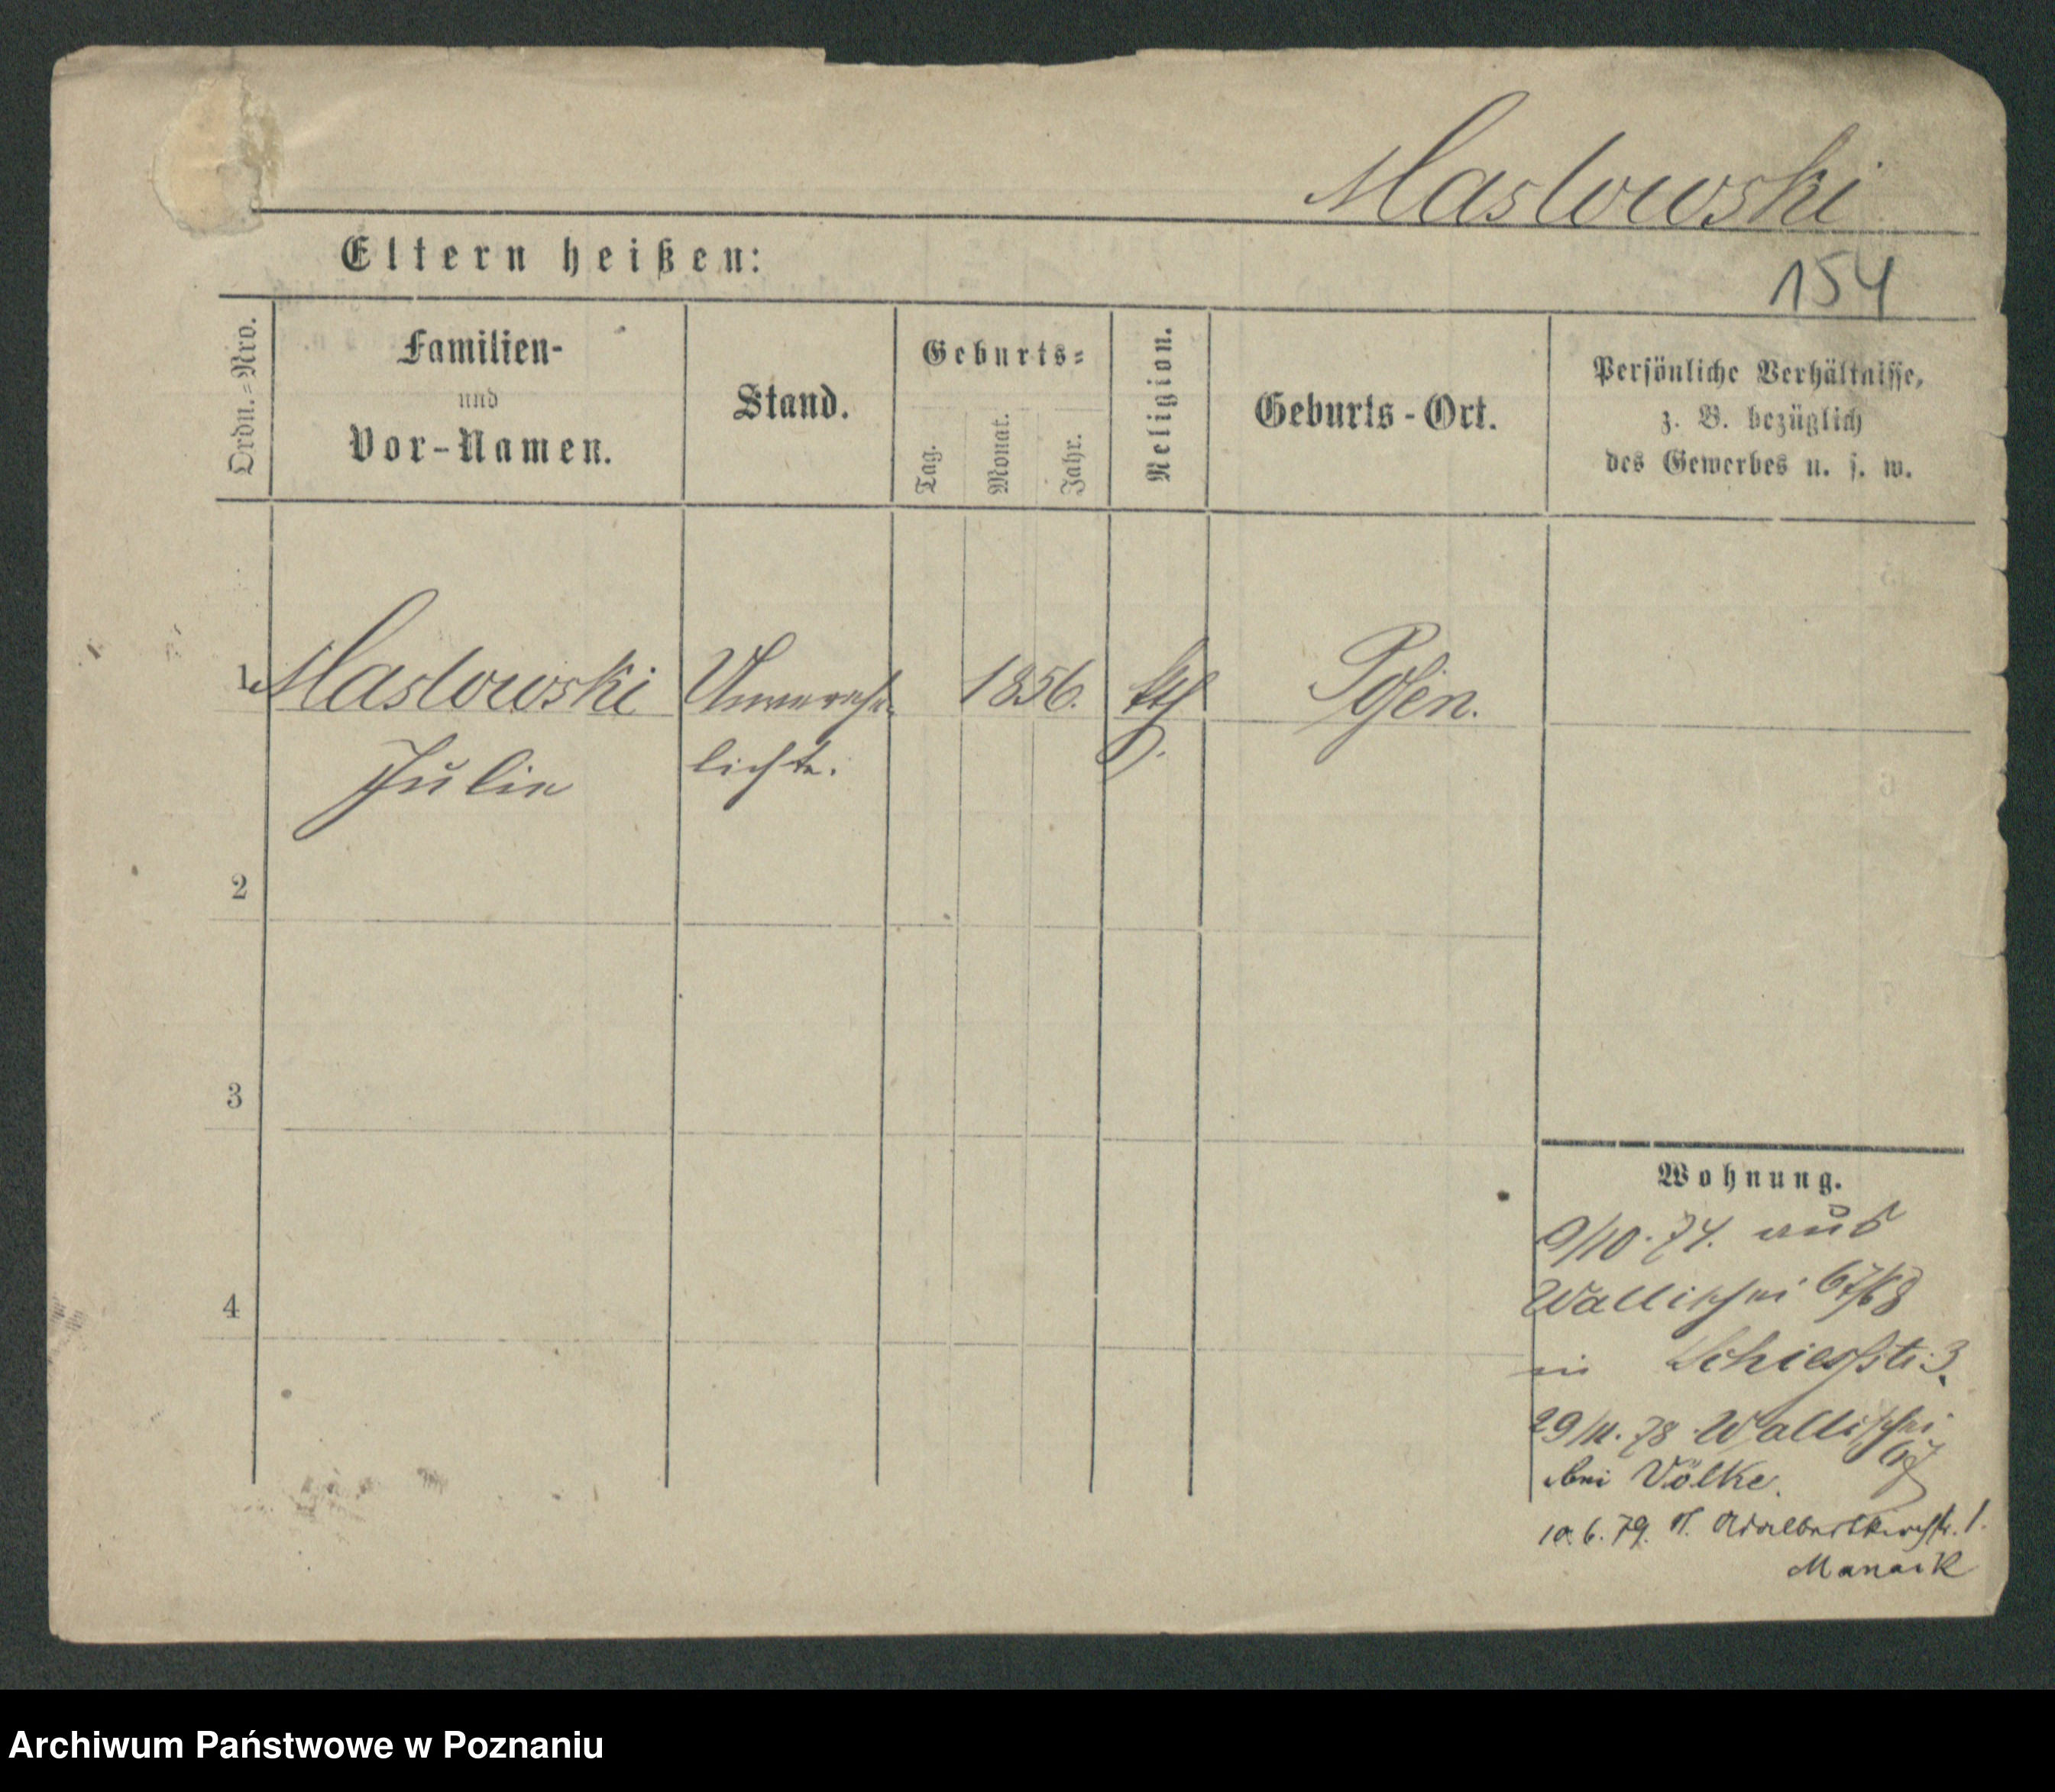 Maslowski
Eltern heißen:
154
Ordn.=Nro.
Familien-
und
Vor-Namen.
Stand.
Geburts=
Tag.
Monat.
Jahr.
Religion.
Geburts-Ort.
Persönliche Verhältnisse,
z. B. bezüglich
des Gewerbes u. s. w.
1 Maslowski Unverehe- 1856. kth Posen.
Julie lichte.
2
3
4
Wohnung.
9/10.74. aus
Wallischei 67/68
in Schiesstr. 3.
29/11.78 Wallischei
67
bei Völke.
10.6.79. Adalbertkirchstr. 1.
Archiwum Państwowe w Poznaniu